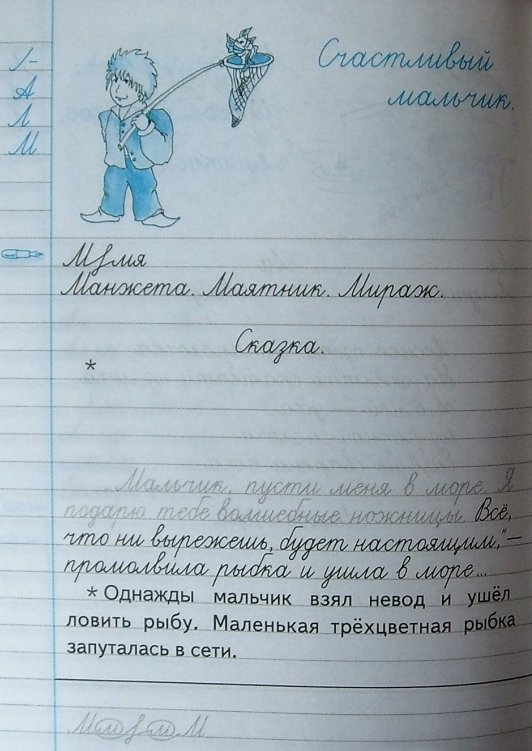 Счастливый
мальчик.
Г
А
Л
М
Мэмия
Манжета. Маятник. Мираж.
Сказка.
*
„Мальчик, пусти меня в море. Я
подарю тебе волшебные ножницы. Всё,
что ни вырежешь, будет настоящим,“ –
промолвила рыбка и ушла в море...
* Однажды мальчик взял невод и ушёл
ловить рыбу. Маленькая трёхцветная рыбка
запуталась в сети.